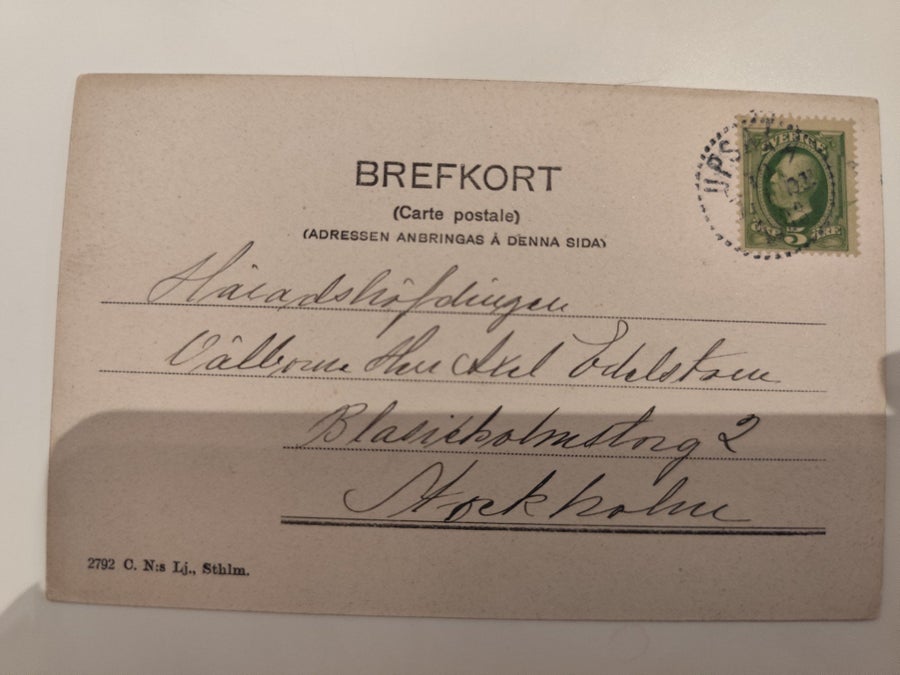 BREFKORT
(Carte postale)
(ADRESSEN ANBRINGAS Å DENNA SIDA)
UPSALA
SVERIGE
5
ÖRE
Häradshöfdingen
Välborne Herr Axel Edelstam
Blasieholmstorg 2
Stockholm
2792 C. N:s Lj., Sthlm.